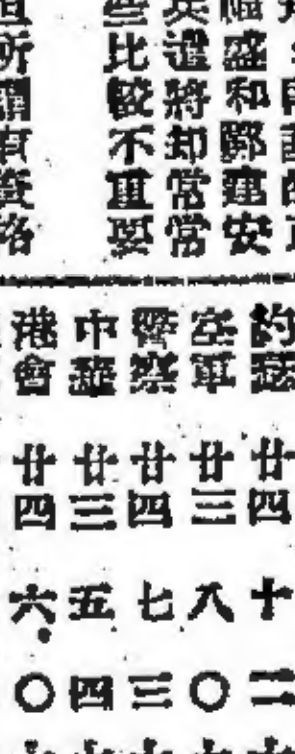 福盛和鄭建安
兵遣將却常常
些比較不重要
所謂有資格
廿四 十 二
空軍 廿三 八 〇
警察 廿四 七 三
中華 廿三 五 四
港會 廿四 六 〇